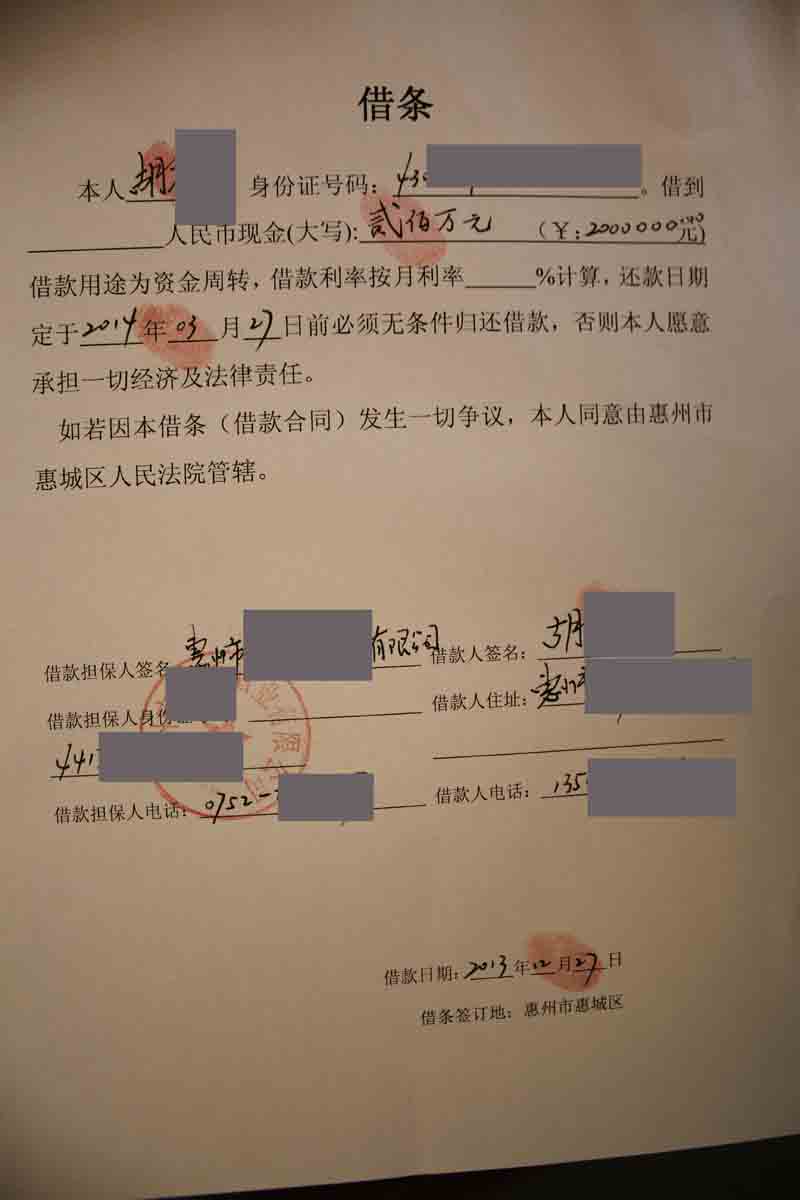 借条
本人胡 身份证号码：430 。借到
人民币现金(大写):贰佰万元 (￥:2000000.00元)
借款用途为资金周转，借款利率按月利率 %计算，还款日期
定于2014年03月27日前必须无条件归还借款，否则本人愿意
承担一切经济及法律责任。
如若因本借条（借款合同）发生一切争议，本人同意由惠州市
惠城区人民法院管辖。
借款担保人签名：惠州市 有限公司 借款人签名：胡
借款担保人身份 借款人住址：惠州市
441
借款担保人电话：0752- 借款人电话：135
借款日期：2013年12月27日
借条签订地：惠州市惠城区